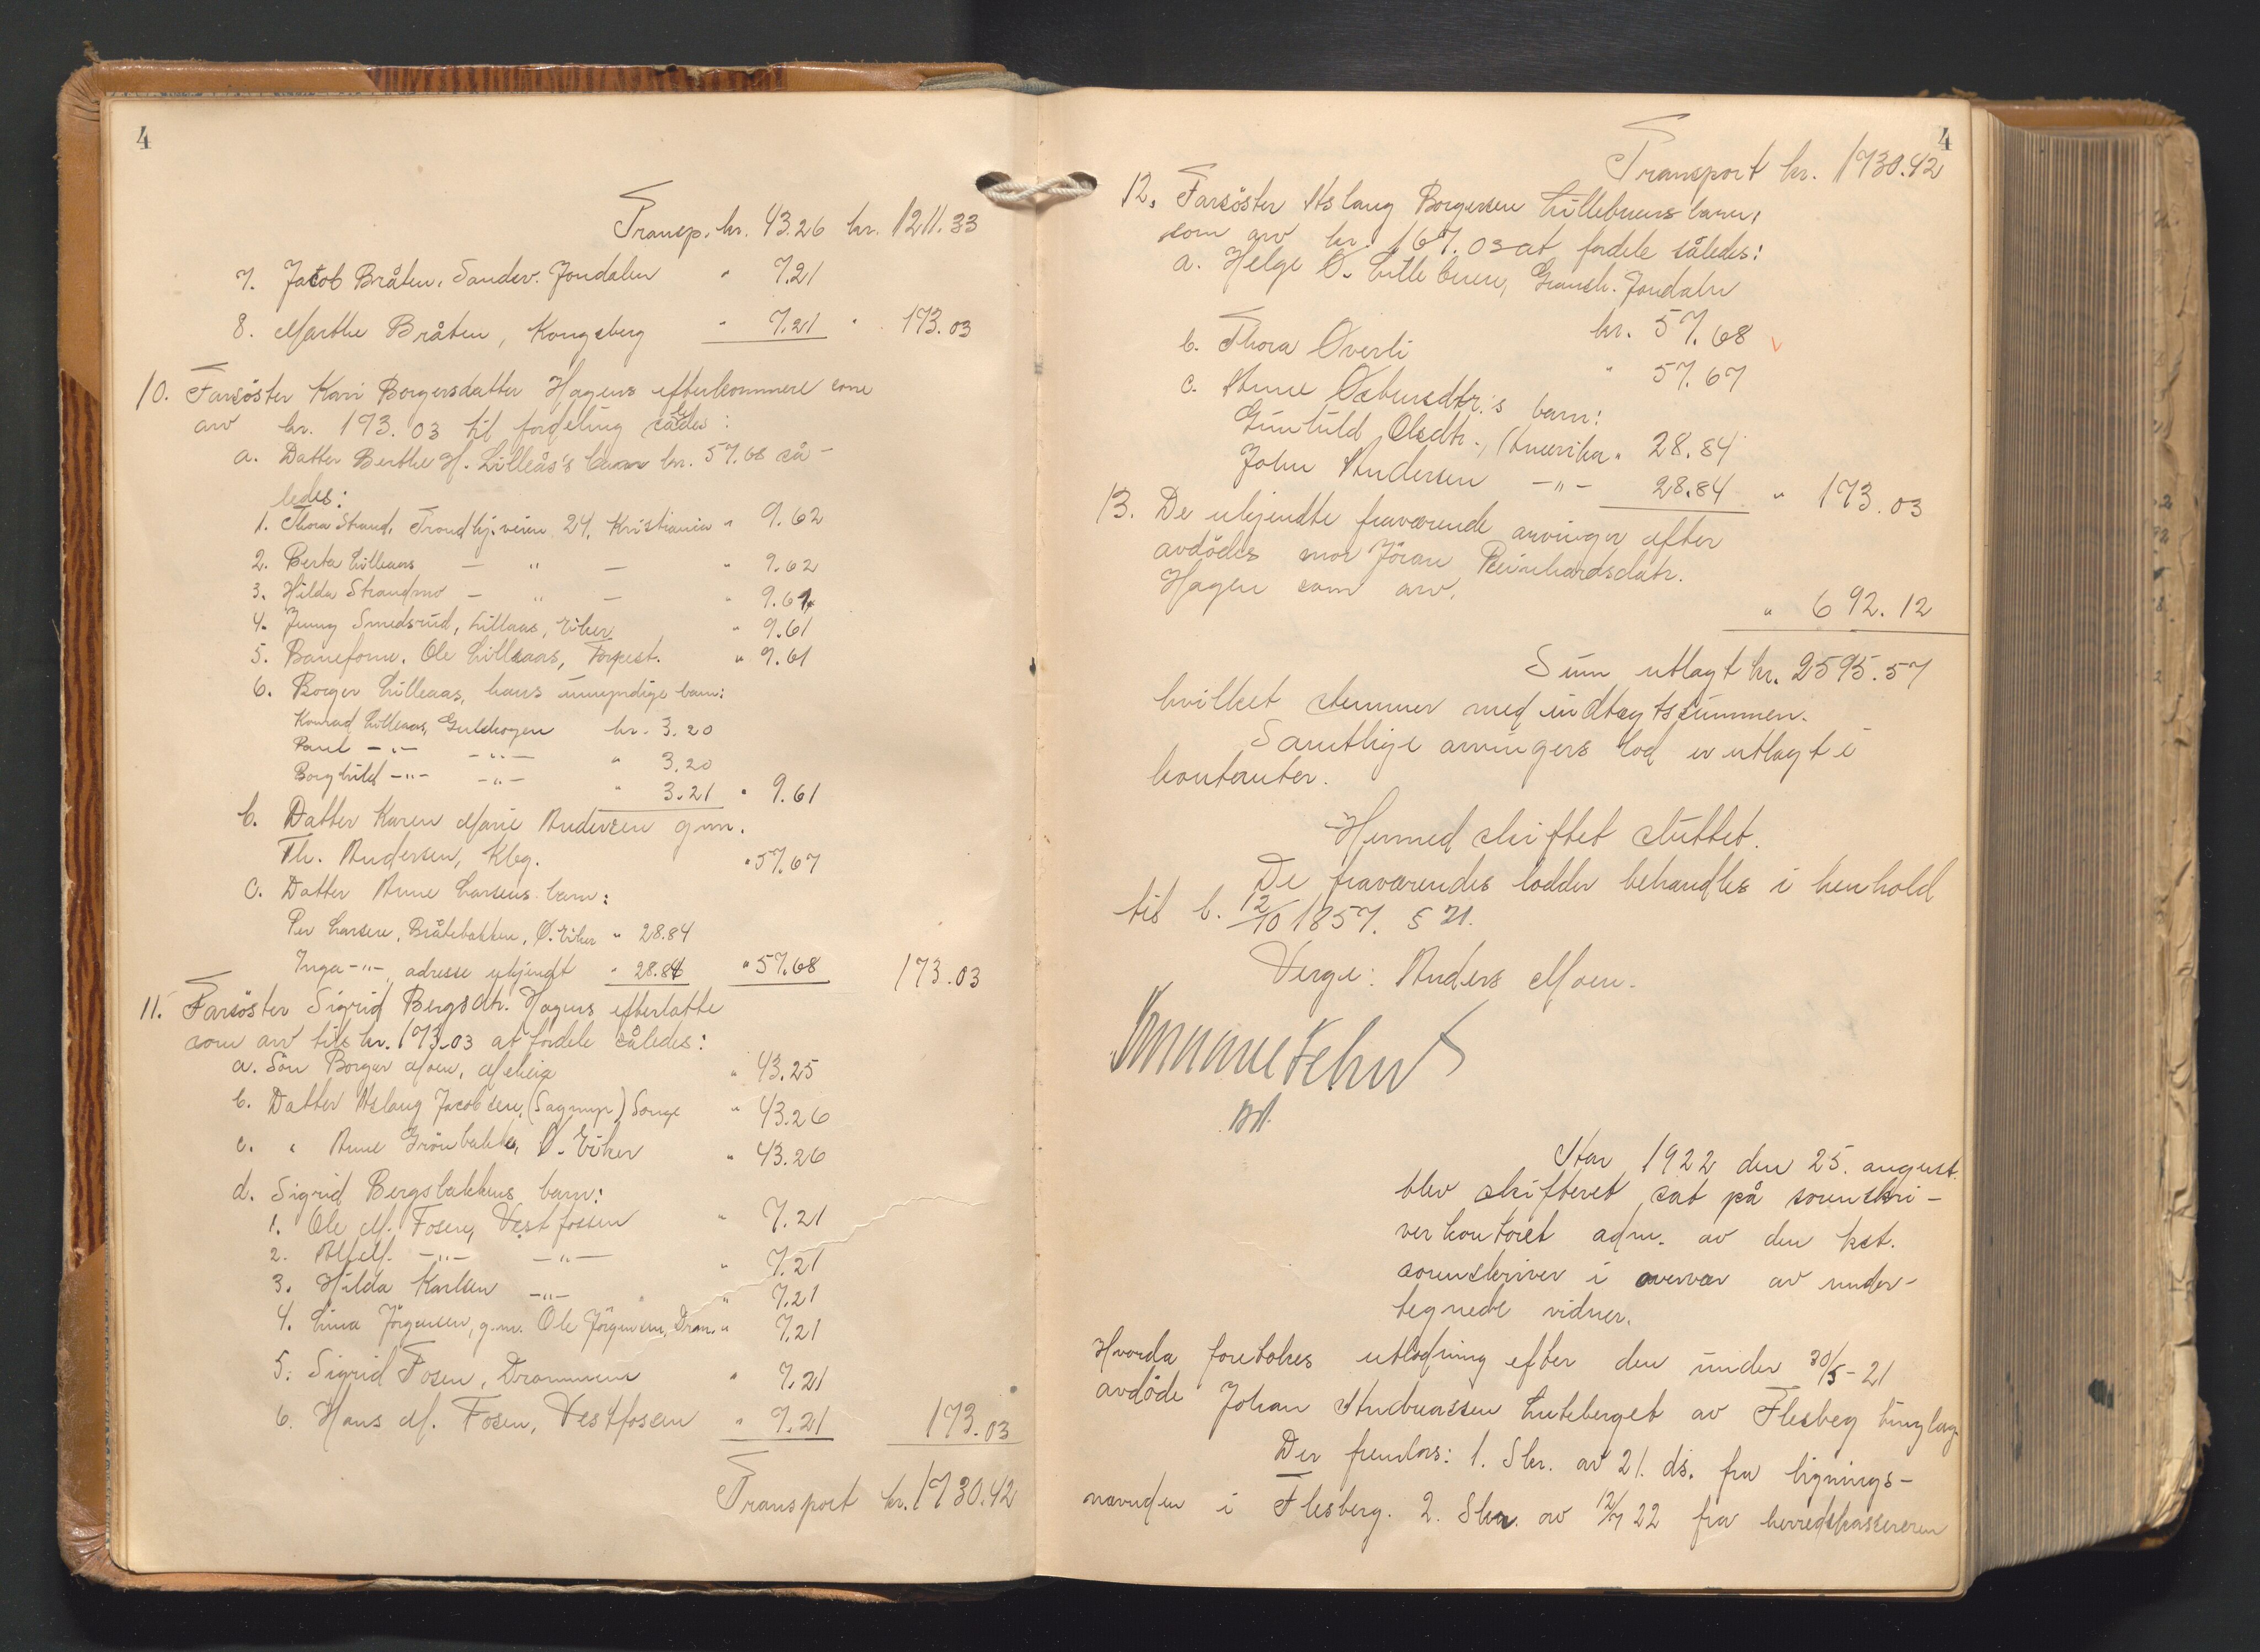 4
Transp. kr. 43.26 kr. 1211.33
7. Jacob Bråten, Sandsv. Jondalen " 7.21
8. Marthe Bråten, Kongsberg " 7.21 " 173.03
10. Farsöster Kari Borgersdatter Hagens efterkommere som
arv kr. 173.03 til fordeling således:
a. Datter Berthe H. Lilleås's barn kr. 57.68 så-
ledes:
1. Thora Strand, Trondhj.veien 24, Kristiania " 9.62
2. Berta Lilleaas — " — " 9.62
3. Hilda Strandmo — " — " 9.61
4. Jenny Smedsrud, Lillaas, Eiker " 9.61
5. Baneform. Ole Lilleaas, " 9.61
6. Borger Lilleaas, hans umyndige barn:
Konrad Lilleaas, Gulskogen kr. 3.20
Paul —"— —"— " 3.20
Borghild —"— —"— " 3.21 " 9.61
b. Datter Karen Marie Andersen g.m.
Th. Andersen, Kbg. " 57.67
c. Datter Anne Larsens barn:
Per Larsen, Bråtebakken, Ø. Eiker " 28.84
Inga —"— adresse ukjendt " 28.84 " 57.68 173.03
11. Farsöster Sigrid Bergsdtr. Hagens efterlatte
som arv tils kr. 173.03 at fordele således:
a. Sön Borger Moen, Meheia " 43.25
b. Datter Aslaug Jacobsen, (Sagmyr) " 43.26
c. " Anne Grönbakke, Ø. Eiker " 43.26
d. Sigrid Bergsbakkens barn:
1. Ole M. Fosen, Vestfossen " 7.21
2. —"— —"— " 7.21
3. Hilda Karlsen —"— " 7.21
4. Lina Jörgensen, g.m. Ole Jörgensen, Dram. " 7.21
5. Sigrid Fosen, Drammen " 7.21
6. Hans M. Fosen, Vestfossen " 7.21 173.03
Transport kr. 1730.42
4
Transport kr. 1730.42
12. Farsöster Aslaug Borgersen Lillebuens barn,
som arv kr. 167.03 at fordele således:
a. Helge O. Lillebuen, Gransh. Jondalen
kr. 57.68
b. Thora Överli " 57.67
c. Anne Osbunsdtr.'s barn:
Gunhild Olsdtr., Amerika " 28.84
John Andersen —"— 28.84 " 173.03
13. De ukjendte fraværende arvinger efter
avdödes mor Jöran Reinhardsdatr.
Hagen som arv,
" 692.12
Sum utlagt kr. 2595.57
hvilket stemmer med indtægtssummen.
Samtlige arvingers lod er utlagt i
kontanter.
Hermed skiftet sluttet.
De fraværendes lodder behandles i henhold
til l. 12/10 1857. § 21.
Verge: Anders Moen.
Aar 1922 den 25. august
blev skifteret sat på sorenskri-
verkontoret adm. av den kst.
sorenskriver i overvær av under-
tegnede vidner.
Hvorda foretokes utlodning efter den under 30/5-21
avdöde Johan Andreassen Luteberget av Flesberg tinglag.
Der fremlaas: 1. Skr. av 21. ds. fra lignings-
nævnden i Flesberg. 2. Skr. av 12/7 22 fra herredskassereren